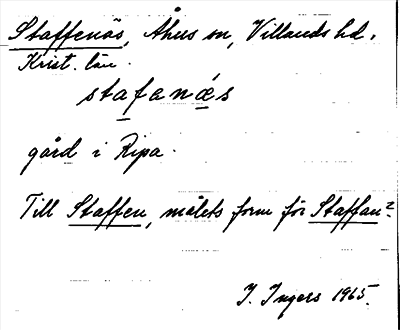 Staffenäs, Åhus sn, Villands hd,
Krist. län.
stafenæ̀s
gård i Ripa.
Till Staffen, målets form för Staffan?
I. Ingers 1965.